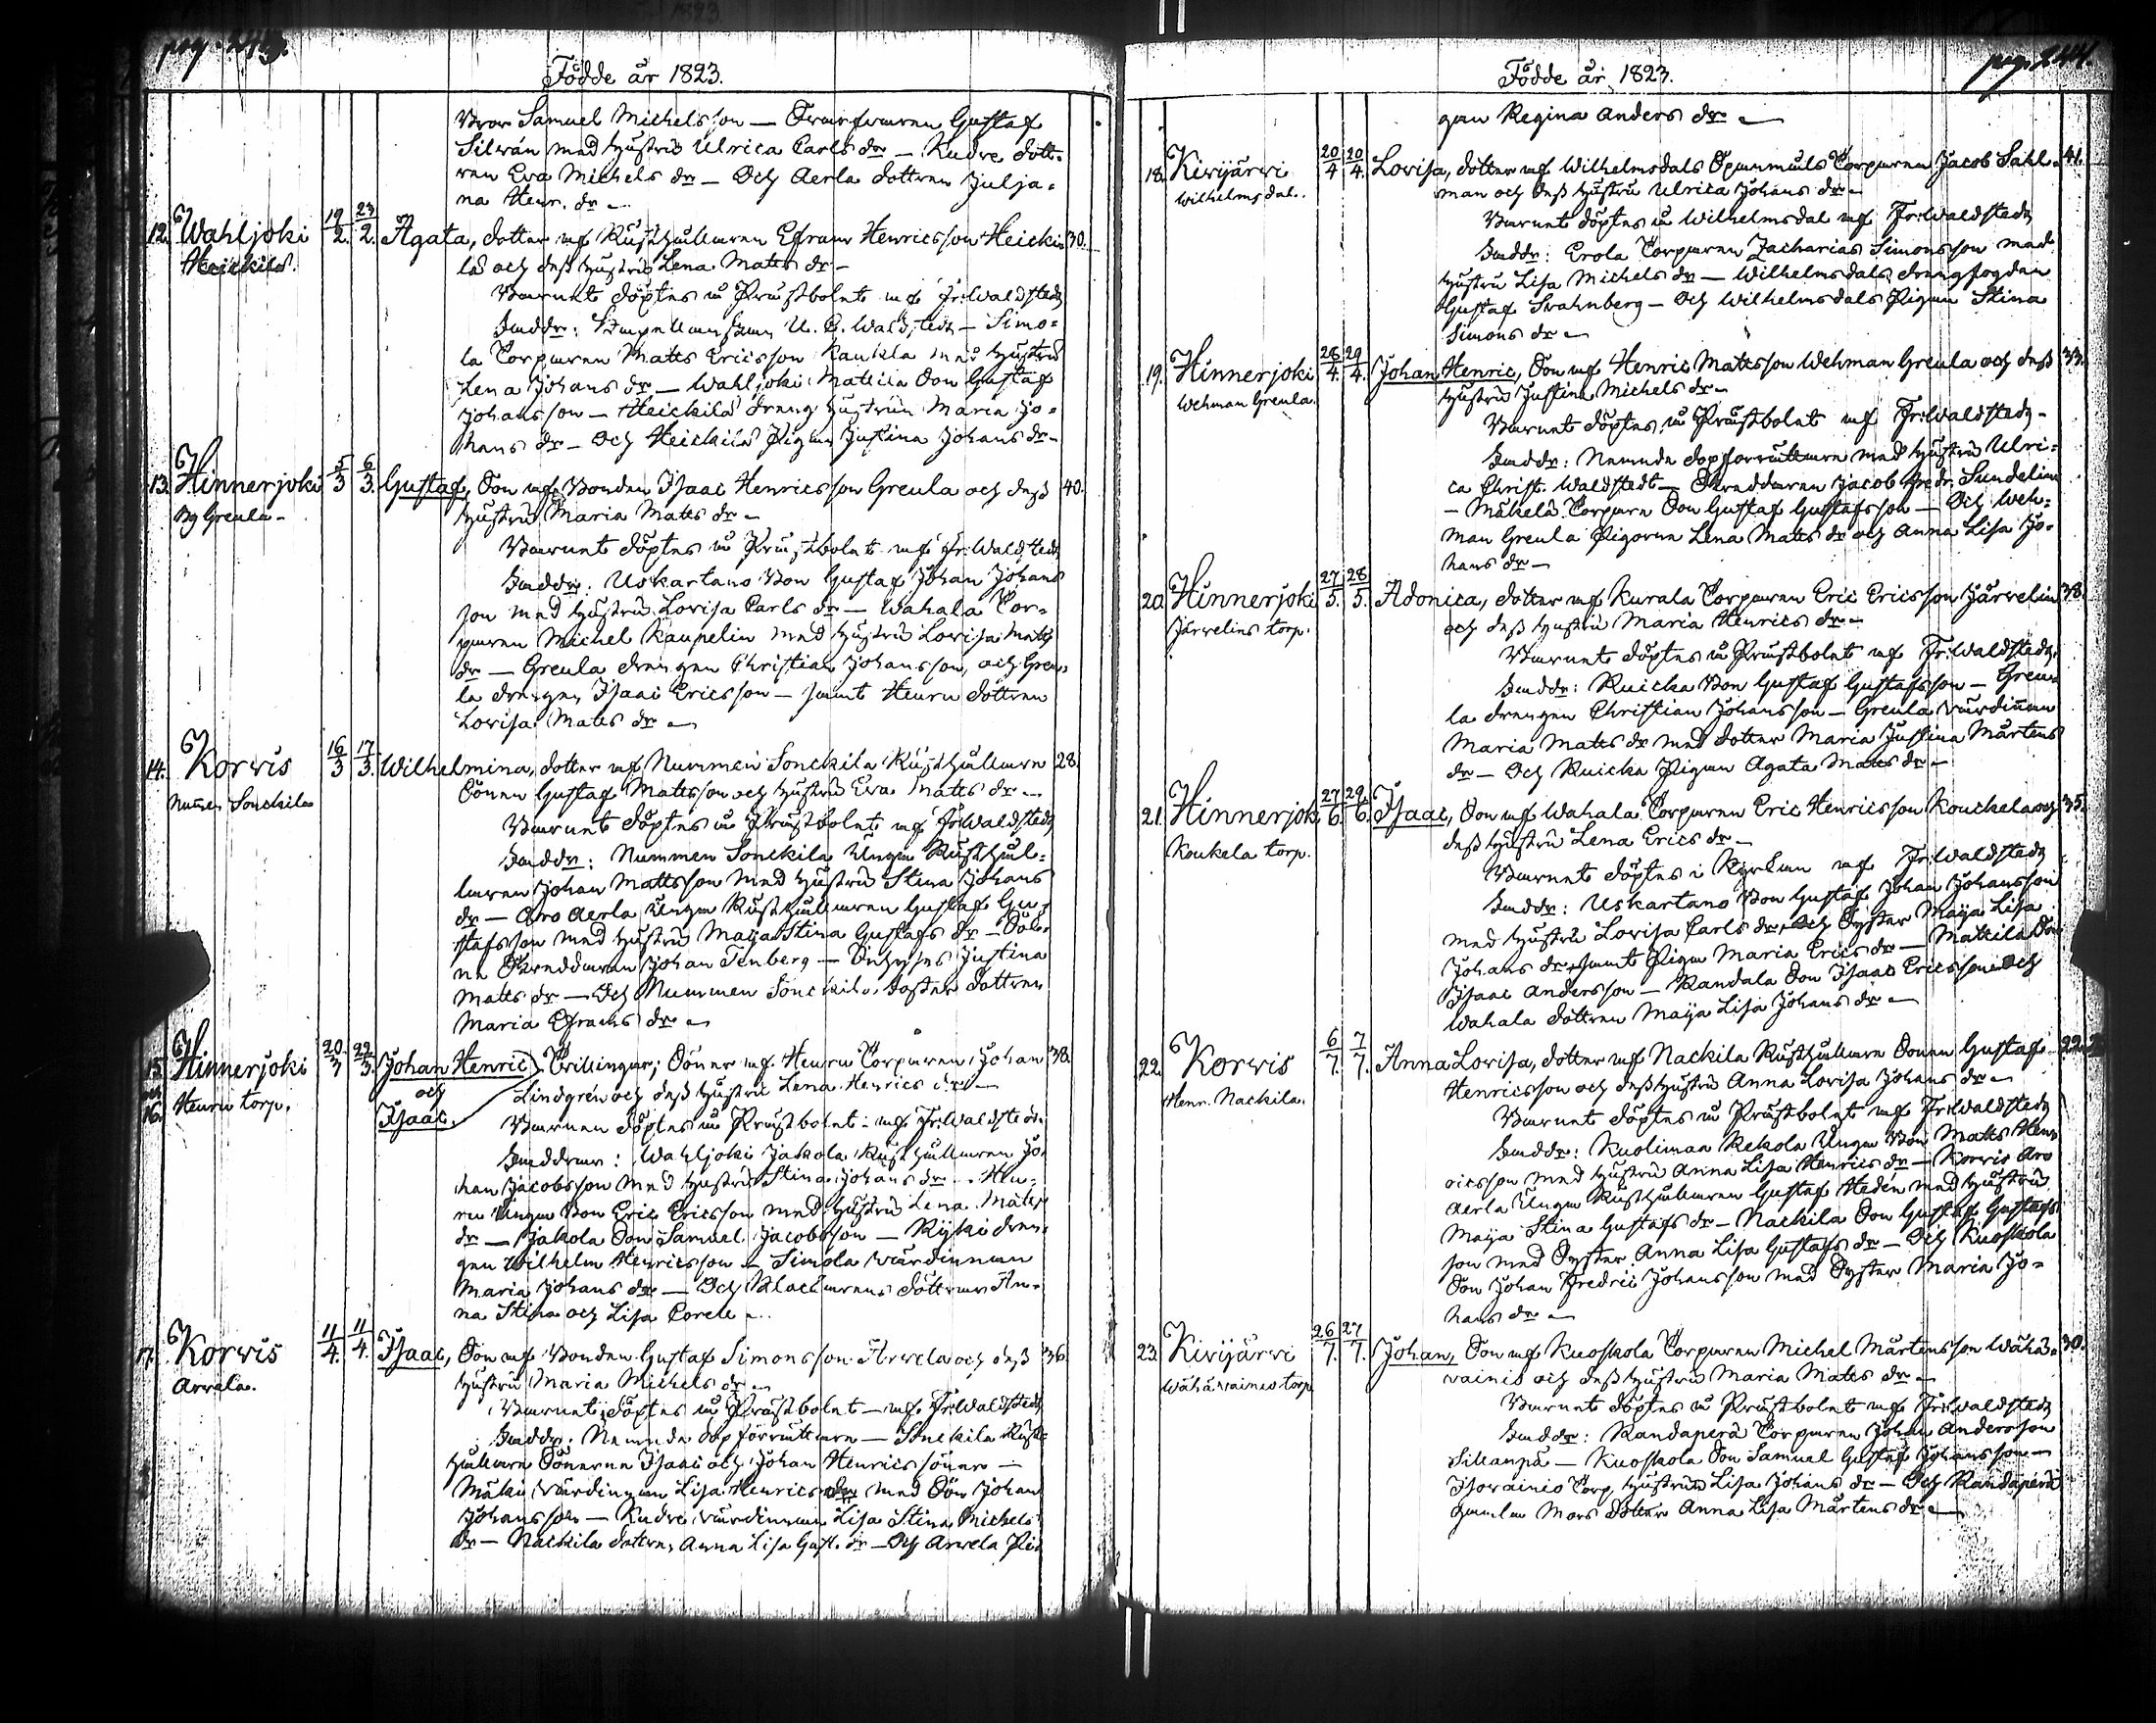 pag. 243.
Födde år 1823.
Bror Samuel Michelsson — Trumfararen Gustaf
Silwán med hustru Ulrica Carls dr — Kudre dott-
ren Eva Michels dr — Och Aerla dottren Julja-
na Henr. dr —
12. Wahljoki 19/2. 23/2. Agata, dotter af Rusthållaren Efraim Henricsson Heicki- 30.
Heickilä. lä och dess hustru Lena Matts dr —
Barnet döptes å Prästbolet af Fr: Waldstedt
Faddr: U. C. Waldstedt — Simo-
la Torparen Matts Ericsson Kaukla med hustru
Lena Johans dr — Wahljoki Mattila Son Gustaf
Johansson — Heickilä dräng hustrun Maria Jo-
hans dr — Och Heickilä Pigan Justina Johans dr —
13. Hinnerjoki 5/3 6/3. Gustaf, Son af Bonden Isaac Henricsson Greula och dess 40.
By Greula — hustru Maria Matts dr —
Barnet döptes å Prästbolet af Fr: Waldstedt
Faddr: Uskartano Bon Gustaf Johan Johans
son med hustru Lovisa Carls dr — Wahala Tor-
paren Michel Kaupelin med hustru Lovisa Matts
dr — Greula drengen Christian Johansson, och Greu-
la drengen Isaac Ericsson — samt Heuru dottren
Lovisa Matts dr —
14. Korvis 16/3 17/3. Wilhelmina, dotter af Nummen Sonckila Rusthållare 28.
Numen Sonckila Sonen Gustaf Mattsson och hustru Eva Matts dr —
Barnet döptes å Prästbolet af Fr: Waldstedt
Faddr: Nummen Sonckila Unga Rusthål-
laren Johan Mattsson med hustru Stina Johans
dr — Aro Aerla Unga Rusthållaren Gustaf Gu-
stafsson med hustru Maja Stina Gustafs dr —
Skreddaren Johan Tenberg — Justina
Matts dr — Och Nummen Sonckila dottren
Maria Efraims dr —
15. Hinnerjoki 20/3 22/3. Johan Henric Tvillingar; Söner af Heuru Torparen Johan 38.
och 16. Heuru torp. och Lindgrén och dess hustru Lena Henrics dr —
Isaac. Barnen döptes å Prästbolet af Fr: Waldstedt.
Faddrar: Wahljoki Jakola Rusthållaren Jo-
han Jacobsson med hustru Stina Johans dr — Heu-
ru Unga Bon Eric Ericsson med hustru Lena Matts
dr — Jakola Son Samuel Jacobsson — Kyki dren-
gen Wilhelm Henricsson — Simola wärdinnan
Maria Johans dr — Och Klockarens döttrar An-
na Stina och Lisa
17. Korvis 11/4. 11/4. Isaac, Son af Bonden Gustaf Simonsson Arvela och dess 36.
Arvela. hustru Maria Michels dr —
Barnet döptes å Prästbolet — af Fr: Waldstedt
Faddr: Nemnde dopförrättare — Sonckila Rust-
hållare Sönerne Isaac och Johan Henrics söner —
Mäki wärdinnan Lisa Henrics dr med Son Johan
Johansson — Kudre wärdinnan Lisa Stina Michels
dr — Nackila dottren Anna Lisa Gust. dr — Och Arvela Pi-
pag. 244.
Födde år 1823.
gan Regina Anders dr —
18. Kivijärvi 20/4 20/4. Lovisa, dotter af Wilhelmsdals Torparen Jacob Sahl- 41.
Wilhelmsdal. man och dess hustru Ulrica Johans dr —
Barnet döptes å Wilhelmsdal af Fr: Waldstedt
Faddr: Erola Torparen Zacharias Simonsson med
hustru Lisa Michels dr — Wilhelmsdals drengfogden
Gustaf Strahnberg — Och Wilhelmsdals Pigan Stina
Simons dr —
19. Hinnerjoki 28/4. 29/4. Johan Henric, Son af Henric Mattsson Wehman Greula och dess 33.
Wehman Greula hustru Justina Michels dr —
Barnet döptes å Prästbolet af Fr: Waldstedt —
Faddr: Nemnde dopförrättare med hustru Ulri-
ca Christ. Waldstedt — Skreddaren Jacob Fredr. Sundelin
— Mäkelä Torpare Son Gustaf Gustafsson — Och Weh-
man Greula Pigorna Lena Matts dr och Anna Lisa Jo-
hans dr —
20. Hinnerjoki 27/5. 28/5. Adonica, dotter af Kurala Torparen Eric Ericsson Järvelin 38.
Järvelins torp. och dess hustru Maria Henrics dr —
Barnet döptes å Prästbolet af Fr: Waldstedt.
Faddr: Ruicka Bon Gustaf Gustafsson — Greu-
la drengen Christian Johansson — Greula wärdinnan
Maria Matts dr med dotter Maria Justina Mårtens
dr — Och Ruicka Pigan Agata Matts dr —
21. Hinnerjok 27/6. 29/6. Isaac, Son af Wahala Torparen Eric Henricsson Kouckela och 35.
Koukela torp. dess hustru Lena Erics dr —
Barnet döptes i Kyrkan af Fr: Waldstedt
Faddr: Uskartano Bon Gustaf Johan Johansson
med hustru Lovisa Carls dr, Och Syster Maija Lisa
Johans dr, samt Pigan Maria Erics dr — Mattila Son
Isaac Andersson — Randala Son Isaac Ericsson Och
Wahala dottren Maija Lisa Johans dr —
22. Korvis 6/7. 7/7. Anna Lovisa, dotter af Nackila Rusthållare Sonen Gustaf 22.
Henr. Nackila. Henricsson och dess hustru Anna Lovisa Johans dr —
Barnet döptes å Prästbolet af Fr: Waldstedt
Faddr: Kuolimaa Rekola Unga Bon Matts Hen-
ricsson med hustru Anna Lisa Henrics dr — Korvis Aro
Aerla Unga Rusthållaren Gustaf Hedén med hustru
Maja Stina Gustafs dr — Nackila Son Gustaf Gustafs
son med Syster Anna Lisa Gustafs dr — Och Kuoskola
Son Johan Fredric Johansson med Syster Maria Jo-
hans dr —
23. Kivijärvi 26/7. 27/7. Johan, Son af Kuoskola Torparen Michel Mårtensson Wähä- 30.
Wähävainio torp vainio och dess hustru Maria Matts dr —
Barnet döptes å Prästbolet af Fr: Waldstedt
Faddr: Randaperä Torparen Johan Andersson
Sillanpä — Kuoskola Son Samuel Gustaf Johansson —
Isovainio Torp. hustrun Lisa Johans dr — Och Randaperä
gamla Mors dotter Anna Lisa Mårtens dr —